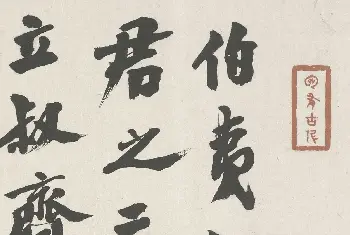 伯夷
君之二
立叔齊